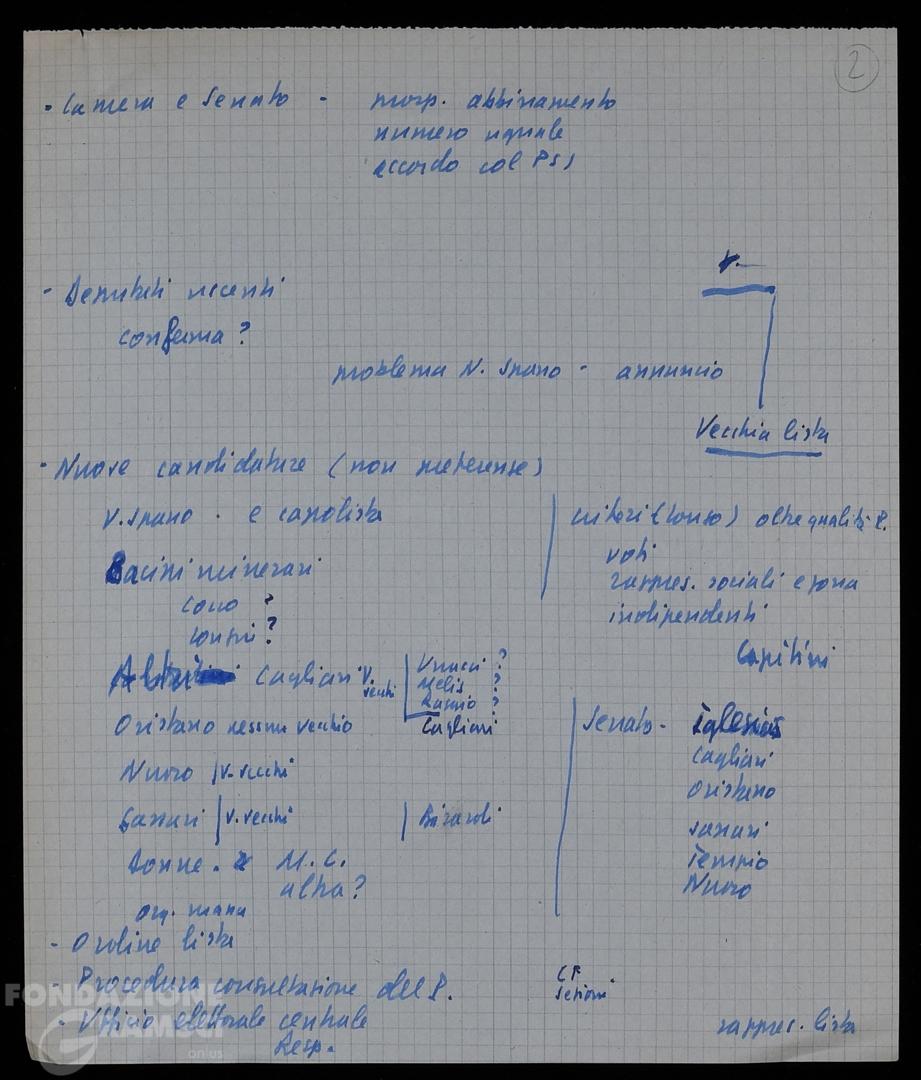 2
- Camera e Senato - prosp. abbinamento
numero uguale
accordo col PSI
- Deputati uscenti
conferma?
V. -
problema V. Spano - annuncio
Vecchia lista
- Nuove candidature (non pretense)
V. Spano. e capolista
criteri (conso) oltre qualità P.
voti
rappres. sociali e zona
indipendenti
Capitini
Bacini minerari
Coco ?
?
Cagliari V. vecchi
?
Melis ?
?
Cagliari
Oristano nessun vecchio
Nuoro V. vecchi
Sassari V. vecchi
Donne. M. C.
altra?
org. massa
Senato - Iglesias
Cagliari
Oristano
Sassari
Tempio
Nuoro
- Ordine lista
- Procedura consultazione del P.
CF
Sezioni
- Ufficio elettorale centrale
Resp.
rappres. lista
FONDAZIONE
GRAMSCI
onlus